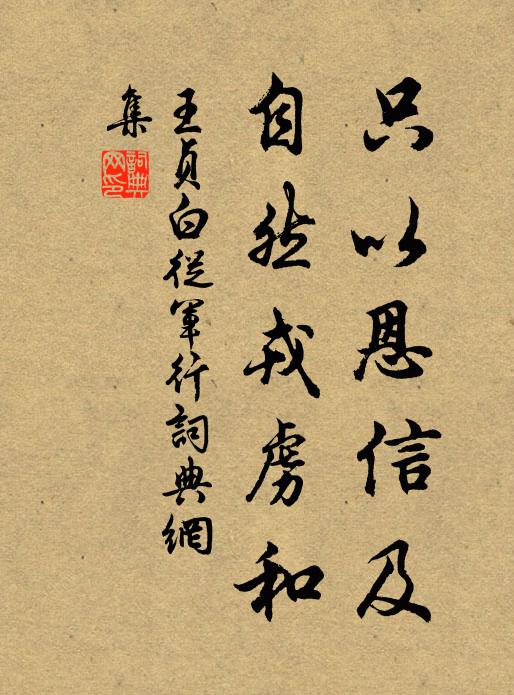 只以恩信及
自然戎虜和
王貞白從軍行詞典網
集
詞典網印